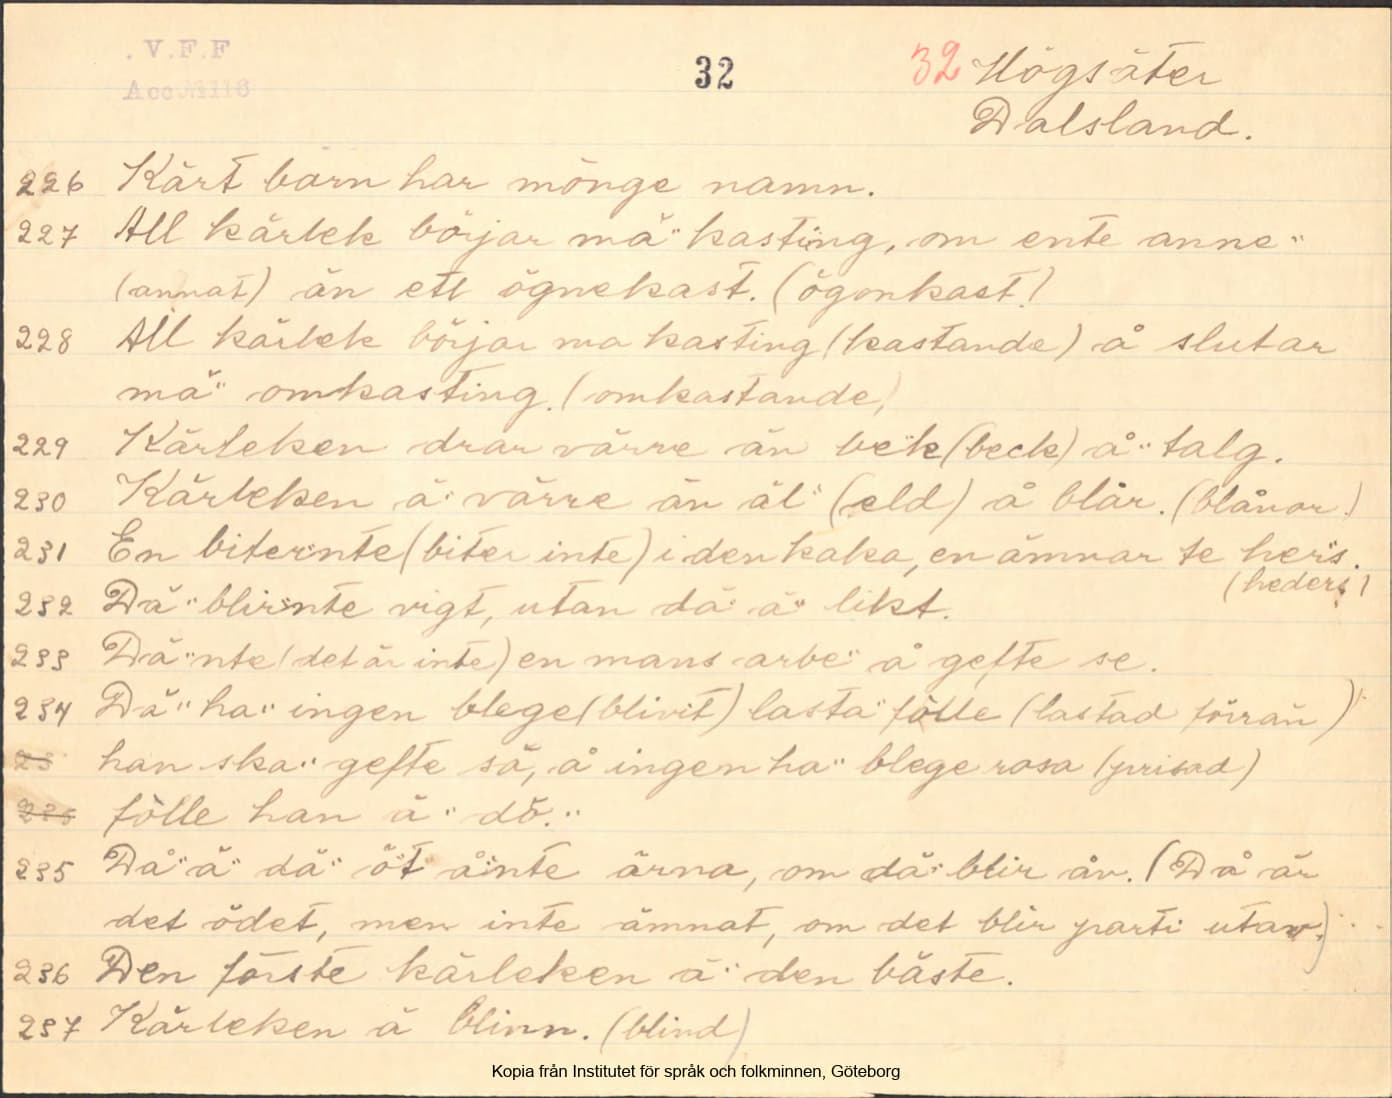 . V.F.F
Acc№118
32
32 Högsäter
Dalsland.
226 Kärt barn har mönge namn.
227 All kärlek börjar mä" kasting, om ente anne"
(annat) än ett ögnekast. (ögonkast)
228 All kärlek börjar ma kasting (kastande) å slutar
mä" omkasting. (omkastande)
229 Kärleken drar värre än bek (beck) å" talg.
230 Kärleken ä" värre än äl" (eld) å blår. (blånor.)
231 En biter"nte (biter inte) i den kaka, en ämnar te her"s.
(heders)
232 Dä" blir"nte vigt, utan dä" ä" likt.
233 Dä"nte (det är inte) en mans arbe" å gefte se.
234 Dä" ha" ingen blege (blivit) lasta" fölle (lastad förrän)
23 han ska" gefte sä, å ingen ha" blege rosa (prisad)
235 fölle han ä" dö."
235 Då" ä" dä" öt å"nte ärna, om dä" blir åv. (Då är
det ödet, men inte ämnat, om det blir parti utav.)
236 Den förste kärleken ä" den bäste.
237 Kärleken ä blinn. (blind)
Kopia från Institutet för språk och folkminnen, Göteborg